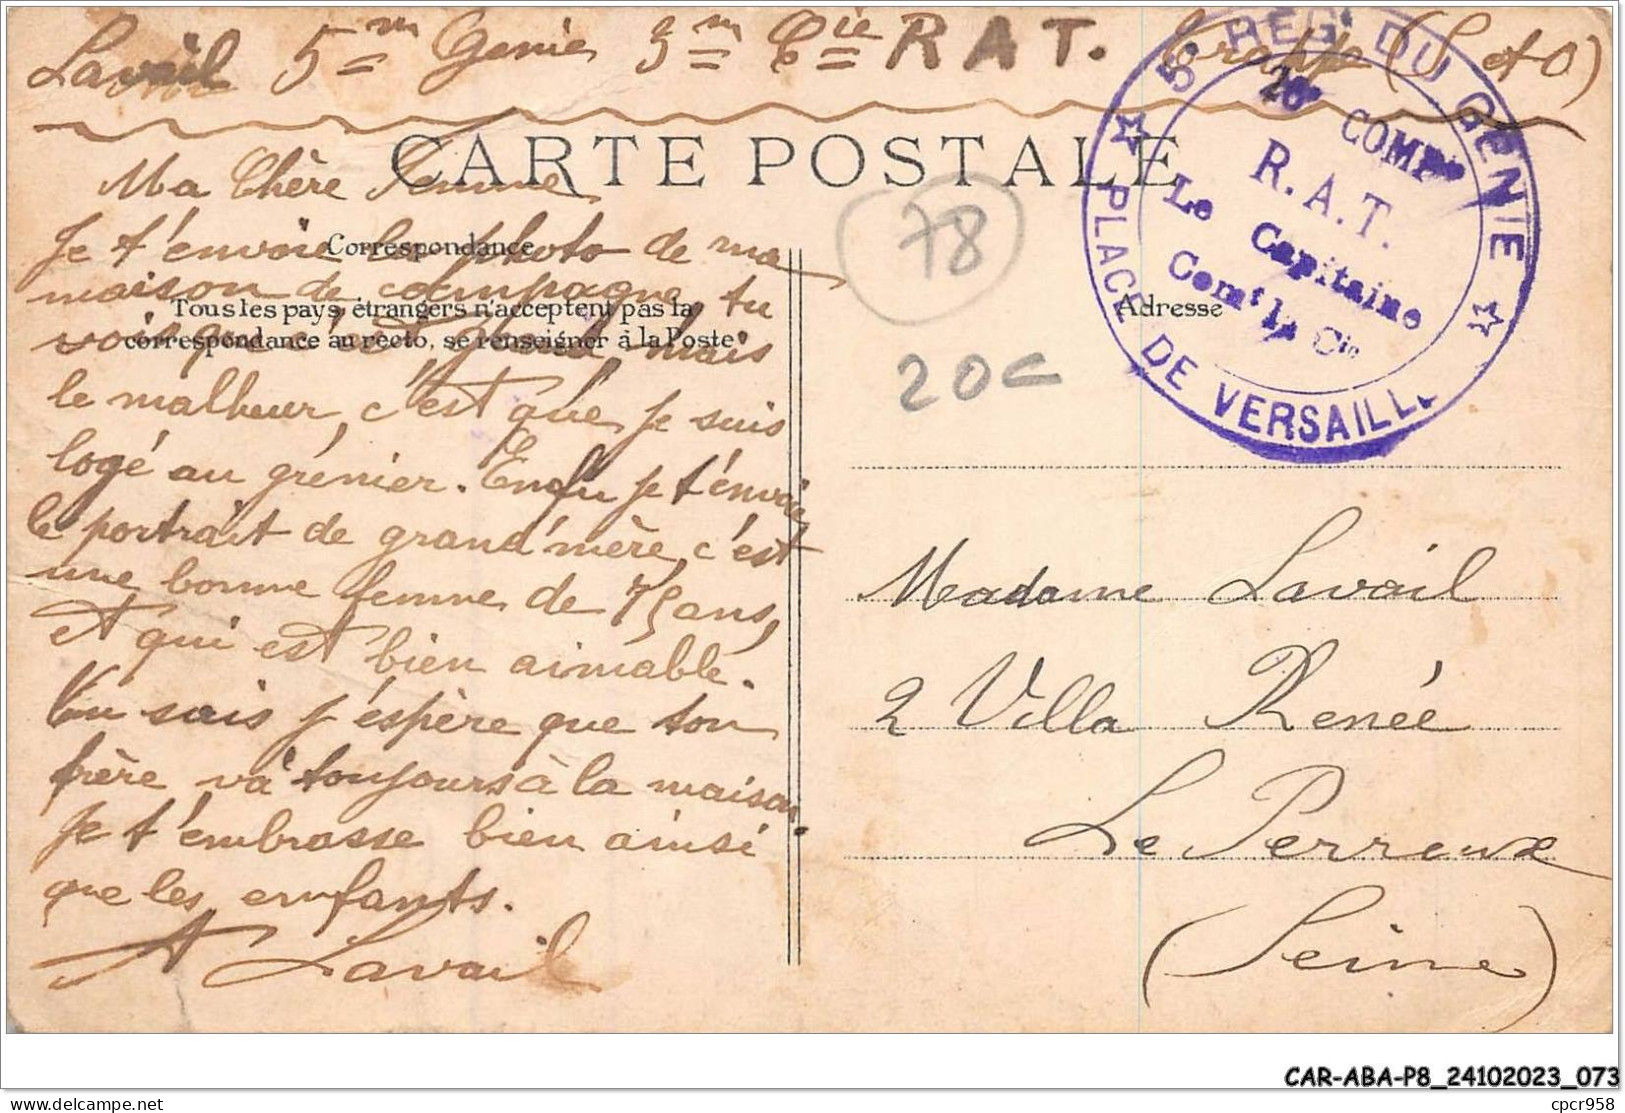 Lavail 5me Genie 3me Cie R A T. Trapp (S et O)
CARTE POSTALE
Ma Chère Femme
Je t'envoie la photo de ma
Correspondance
maison de campagne, tu
Tous les pays étrangers n'acceptent pas la
vois que c'est grand mais
correspondance au recto, se renseigner à la Poste
le malheur, c'est que je suis
logé au grénier. Enfin je t'énvoie
le portrait de grand'mère, c'est
une bonne femme de 75 ans,
et qui est bien aimable.
Tu sais j'éspère que ton
frère va toujours à la maison.
Je t'embrasse bien ainsi
que les enfants.
A Lavail
78
20c
5e REGt DU GENIE
PLACE DE VERSAILL
COMPie
R.A.T.
Le Capitaine
Comt la Cie
Adresse
Madame Lavail
2 Villa Renée
Le Perreux
(Seine)
CAR-ABA-P8_24102023_073
cpcr958